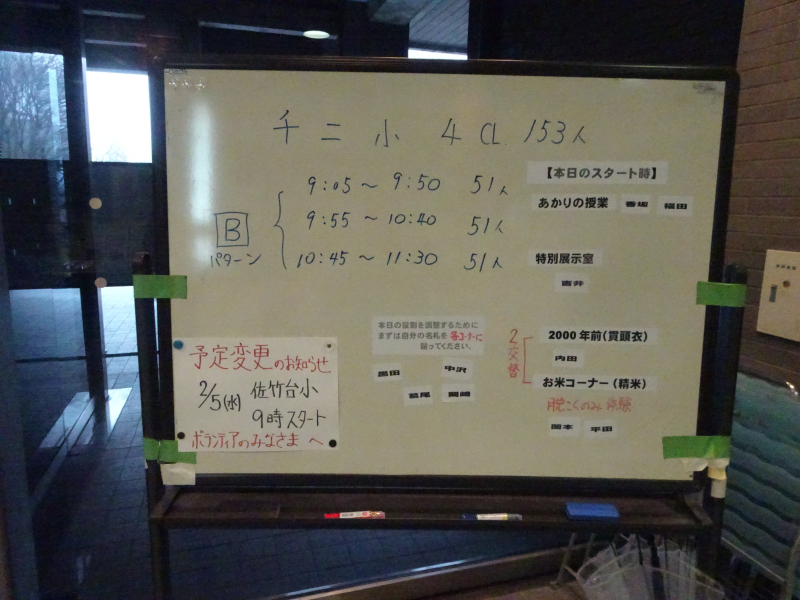 千二小 4CL. 153人
B
パターン
9:05～9:50 51人
9:55～10:40 51人
10:45～11:30 51人
【本日のスタート時】
あかりの授業 香坂 福田
特別展示室
吉井
2000年前(貫頭衣)
内田
お米コーナー(精米)
脱こくのみ体験
岡本 平田
2交替
本日の役割を調整するために
まずは自分の名札を各コーナーに
貼ってください。
黒田 中沢
鷲尾 岡崎
予定変更のお知らせ
2/5(水) 佐竹台小
9時スタート
ボランティアのみなさまへ